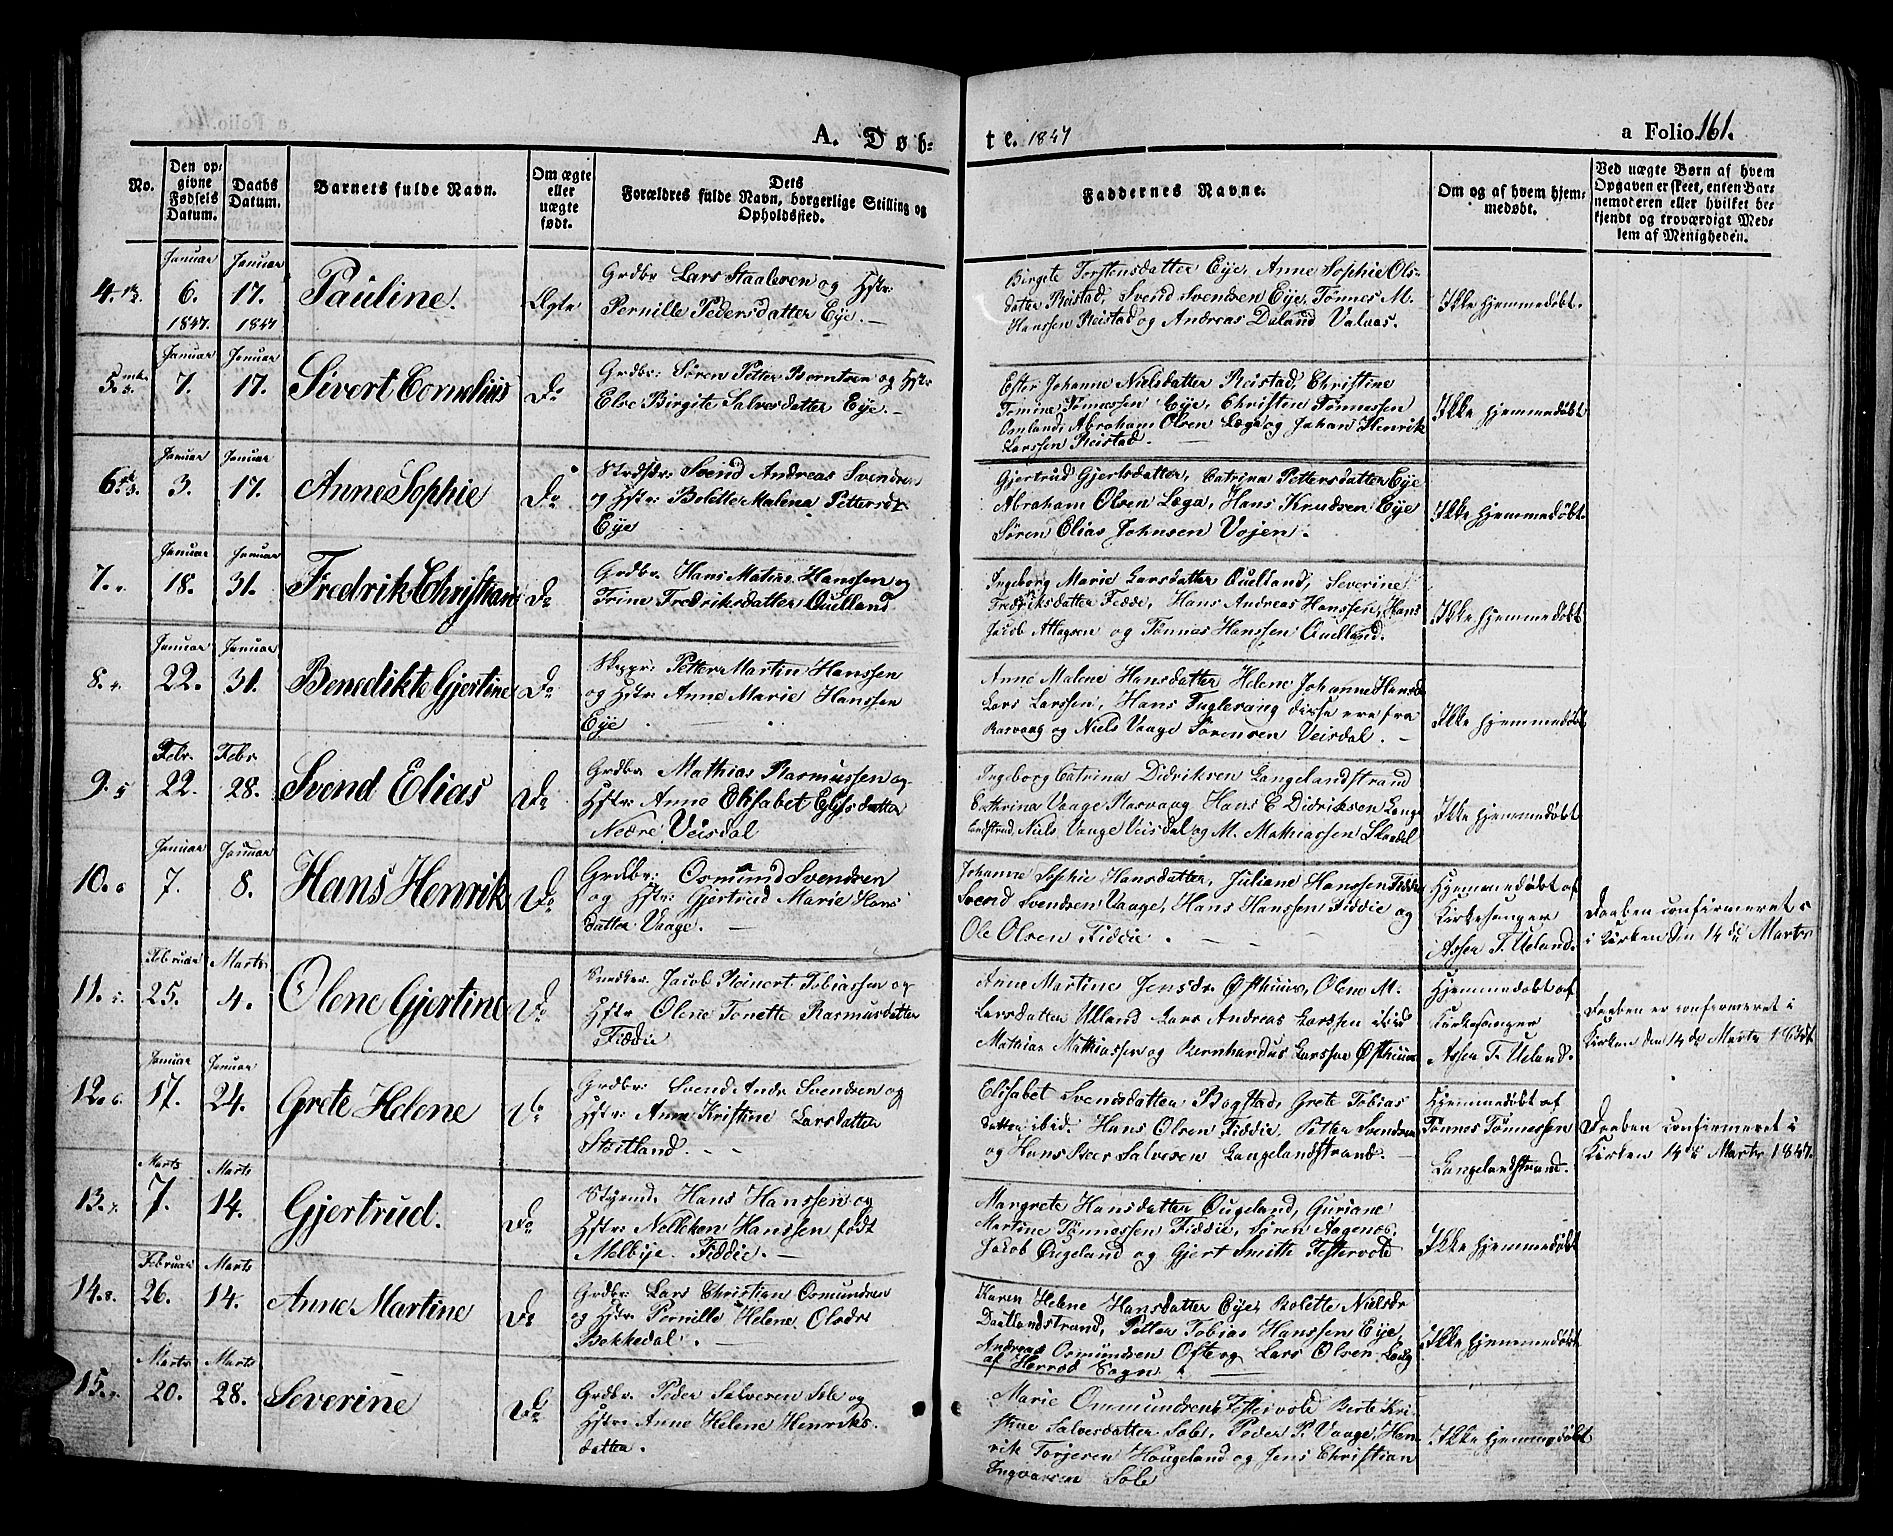 A. Døb-
te. 1847
a Folio 161.
No.
Den opgivne Fødsels Datum.
Daabs Datum.
Barnets fulde Navn.
Om ægte eller uægte født.
Forældres fulde Navn, Dets borgerlige Stilling og Opholdssted.
Faddernes Navne.
Om og af hvem hjemmedøbt.
Ved uægte Børn af hvem Opgaven er skeet, enten Barnemoderen eller hvilket bekjendt og troværdigt Medlem af Menigheden.
4.
Januar 6. 1847.
Januar 17. 1847
Pauline.
Ægte
Grdbr Lars Staalesen og Hstr:
Pernille Pedersdatter Eye.
Birgete Torstensdatter Eye, Anne Sophie Ols-
datter Reistad, Svend Svendsen Eye, Tønnes M.
Hanssen Reistad og Andreas Daland Valvas.
Ikke hjemmedøbt.
5.
Januar 7.
Januar 17.
Sivert Cornelius
Do
Grdbr: Søren Petter Berntsen og Hstr:
Else Birgite Salvesdatter Eye.
Ester Johanne Nielsdatter Reistad, Christine
Tomine Tønnessen Eye, Christen Tønnessen
Omland, Abraham Olsen Læga og Johan Henrik
Larssen Reistad.
Ikke hjemmedøbt
6.
Januar 3.
Januar 17.
Anne Sophie
Do
Svend Andreas Svendsen
og Hstr: Bolette Malena Pettersdr
Eye
Gjertrud Gjertsdatter, Catrina Pettersdatter Eye
Abraham Olsen Læga, Hans Knudsen Eye
Søren Elias Johnsen Vojen.
Ikke hjemmedøbt.
7.
Januar 18.
Januar 31.
Fredrik Christian
Do
Grdbr. Hans Matias Hanssen og
Trine Fredriksdatter Ouelland
Ingeborg Marie Larsdatter Ouelland, Severine
Fredriksdatter Fedde, Hans Andreas Hanssen, Hans
Jacob Attagsen og Tønnes Hanssen Ouelland.
Ikke hjemmedøbt
8.
Januar 22.
Januar 31.
Benedikte Gjertine
Do
Skppr: Petter Martin Hanssen
og Hstr Anne Marie Hanssen
Eye
Anne Malene Hansdatter Helene Johanne Hansdr
Lars Larssen, Hans Fuglevang disse ere fra
Rasvaag og Niels Vaage Sørensen Veisdal.
Ikke hjemmedøbt
9.
Febr. 22.
Febr 28.
Svend Elias
Do
Grdbr: Mathias Rasmussen og
Hstr: Anne Elisabet Elisdatter
Nedre Veisdal
Ingeborg Catrina Didriksen Langelandstrand
Cathrina Vaage Rasvaag Hans E Didriksen Lange
landstrand, Niels Vaage Veisdal og M. Mathiassen Skardal
Ikke hjemmedøbt
10.
Januar 7.
Januar 8.
Hans Henrik
Do
Grdbr: Osmund Svendsen
og Hstr: Gjertrud Marie Hans
datter Vaage.
Johanne Sophie Hansdatter, Juliane Hanssen Fidde
Svend Svendsen Vaage, Hans Hanssen Fiddie og
Ole Olsen Fiddie.
Hjemmedøbt af
Kirkesanger
Asser T. Ueland.
Daaben confirmeret
i Kirken den 14de Marts
11.
Februar 25.
Marts 4.
Olene Gjertine
Do
Snedker Jacob Reinert Tobiassen og
Hstr Olene Tonette Rasmusdatter
Fiddie
Anne Martine Jensdr Østhuus, Olene M.
Larsdatter Ulland Lars Andreas Larssen ibid
Mathias Mathiassen og Bernhardus Larssen Østhuus
Hjemmedøbt af
Kirkesanger
Asser T. Ueland.
Daaben er confirmeret i
Kirken den 14de Marts 1847.
12.
Januar 17.
Januar 24.
Grete Helene
Do
Grdbr: Svend Andr Svendsen og
Hstr: Anne Kristine Larsdatter
Støitland.
Elisabet Svensdatter Bogstad, Grete Tobias
datter ibid. Hans Olsen Fiddie, Petter Svendsen
og Hans Peer Salvesen Langelandstrand.
Hjemmedøbt af
Tønnes Tønnessen
Langelandstrand.
Daaben confirmeret i
Kirken 14de Marts 1847.
13.
Marts 7.
Marts 14.
Gjertrud.
Do
Styrmd. Hans Hanssen og
Hstr: Nelleken Hanssen født
Melbye. Fiddie.
Margrete Hansdatter Ougeland, Guriane
Martine Tønnessen Fiddie, Søren Aagenes,
Jacob Ougeland og Gjert Smith Festervold
Ikke hjemmedøbt
14.
Februar 26.
Marts 14.
Anne Martine
Do
Grdbr: Lars Christian Osmundsen
og Hstr Pernille Helene Olsdr
Bekkedal.
Karen Helene Hansdatter Eye, Bolette Nielsdr
Daatlandstrand, Petter Tobias Hanssen Eye,
Andreas Osmundsen Ofte og Lars Olsen
af Herred Sogn.
Ikke hjemmedøbt
15.
Marts 20.
Marts 28.
Severine
Do
Grdbr. Peder Salvesen Sole og
Hstr: Anne Helene Henriks
datter.
Marie Ommundsen Festervold Berte Kri-
stine Salvesdatter Sole, Peder P. Vaage, Hen-
rik Torjersen Hougeland og Jens Christian
Ingvarsen Sole
Ikke hjemmedøbt